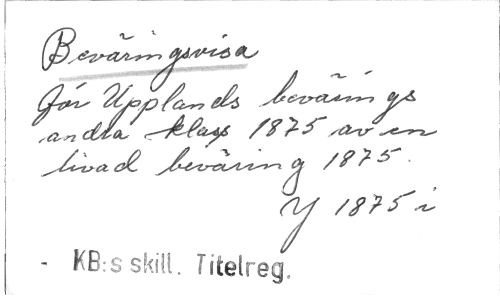 Beväringsvisa
för Upplands bevärings
andra klass 1875 av en
livad beväring 1875.
Y 1875 i
- KB:s skill. Titelreg.